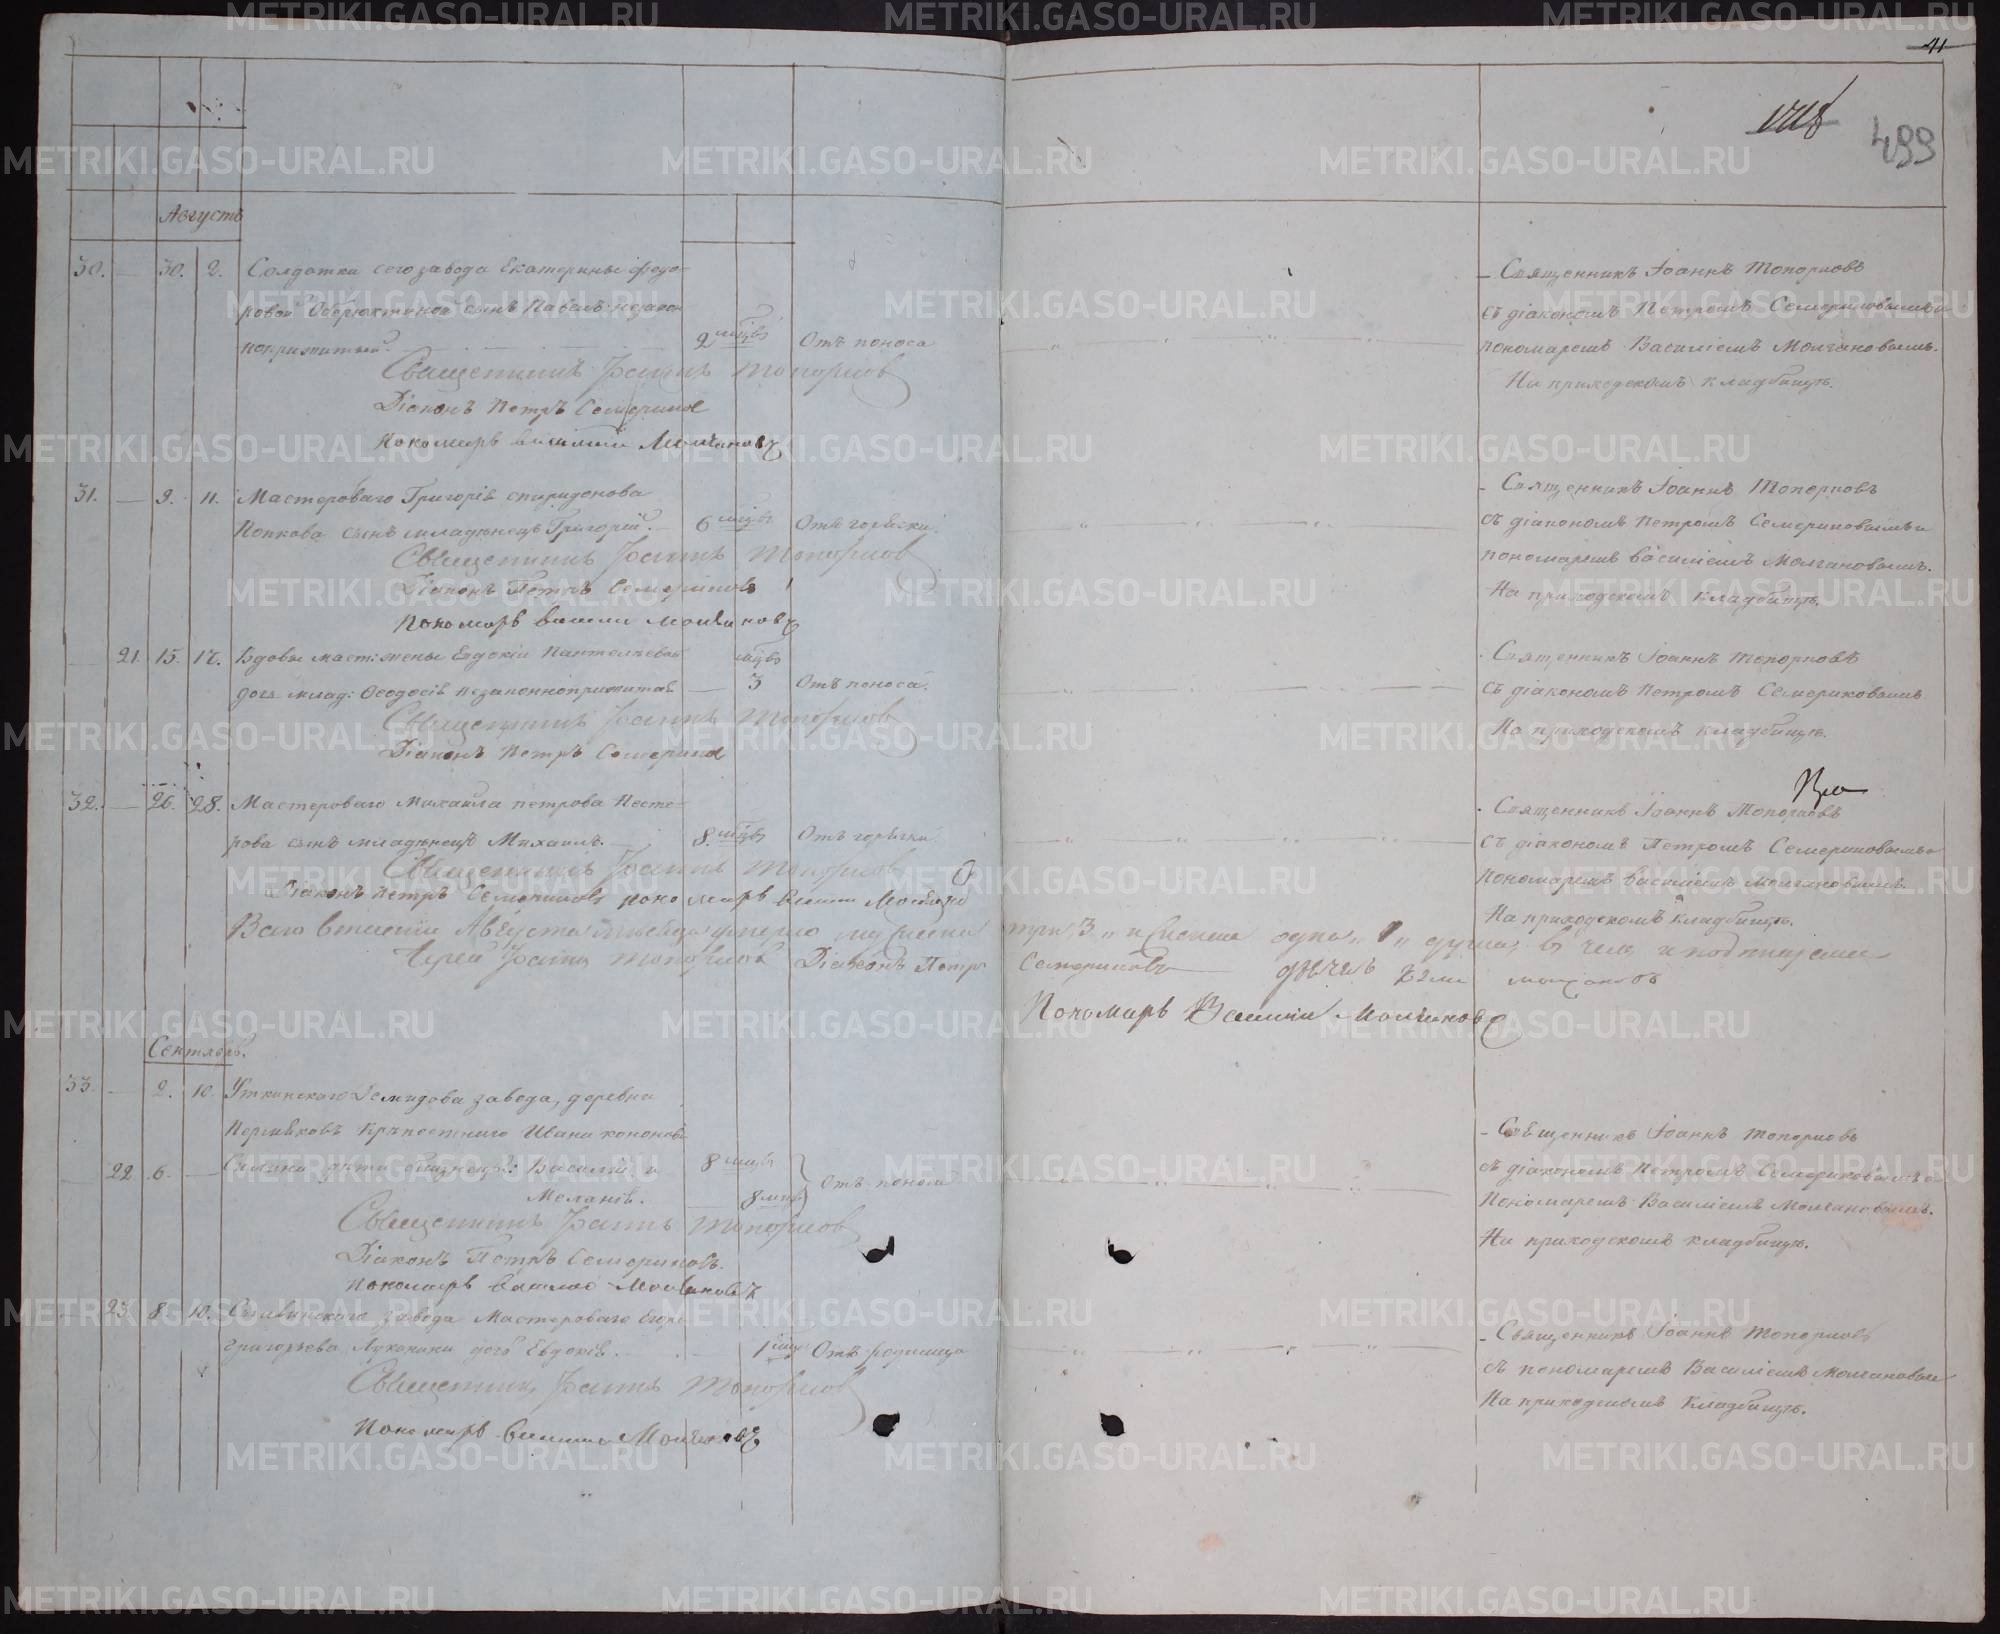 41
499
Августъ
30. — 30. 2. Солдатки сего завода Екатерины Ѳедо-
ровой сынъ Павелъ незакон
норижитый. 2 мцвъ Отъ поноса
Священникъ Іоаннъ Топорковъ
Діаконъ Петръ Семериковъ
Пономарь Василій Молчановъ
— Священникъ Іоаннъ Топорковъ
съ діакономъ Петромъ Семериковымъ и
пономаремъ Василіемъ Молчановымъ.
На приходскомъ кладбищѣ.
31. — 9. 11. Мастероваго Григорія Спиридонова
Попкова сынъ младѣнецъ Григорій. 6 мцвъ Отъ горячки
Священникъ Іоаннъ Топорковъ
Діаконъ Петръ Семериковъ
Пономарь Василій Молчановъ
— Священникъ Іоаннъ Топорковъ
съ діакономъ Петромъ Семериковымъ и
пономаремъ Василіемъ Молчановымъ.
На приходскомъ кладбищѣ.
21. 15. 17. Вдовы маст: жены Евдокіи Пантелѣевой мцвъ
дочь млад: Ѳеодосія незаконноприжитая — 3 Отъ поноса.
Священникъ Іоаннъ Топорковъ
Діаконъ Петръ Семериковъ
Священникъ Іоаннъ Топорковъ
съ діакономъ Петромъ Семериковымъ
На приходскомъ кладбищѣ.
32. — 26. 28. Мастероваго Михаила Петрова Несте-
рова сынъ младѣнецъ Михаилъ. 8. мцвъ Отъ горячки
Священникъ Іоаннъ Топорковъ
Діаконъ Петръ Семериковъ Пономарь Василій Молчановъ
Священникъ Іоаннъ Топорковъ
съ діакономъ Петромъ Семериковымъ и
пономаремъ Василіемъ Молчановымъ.
На приходскомъ кладбищѣ.
Всего въ Августа мѣсяца умерло три 3 одна 1 душа, въ чемъ и подписуемся
Іерей Іоаннъ Топорковъ Діаконъ Петръ Семериковъ
Пономарь Василій Молчановъ
Сентябрь.
33. — 2. 10. Уткинскаго Демидова завода, деревни
Пермяковъ крѣпостнаго Ивана Кононова
22 6. — дѣти близнецы: Василій и 8 мцвъ
Меланія. 8 мцвъ Отъ поноса
Священникъ Іоаннъ Топорковъ
Діаконъ Петръ Семериковъ.
Пономарь Василій Молчановъ
— Священникъ Іоаннъ Топорковъ
съ діакономъ Петромъ Семериковымъ и
Пономаремъ Василіемъ Молчановымъ.
На приходскомъ кладбищѣ.
23 8 10. Сылвинского завода Мастероваго Егора
Григорьева Луканина дочь Евдокія. 1 мцъ Отъ родимца
Священникъ Іоаннъ Топорковъ
Пономарь Василій Молчановъ
— Священникъ Іоаннъ Топорковъ
съ пономаремъ Василіемъ Молчановым
На приходскомъ кладбищѣ.
METRIKI.GASO-URAL.RU